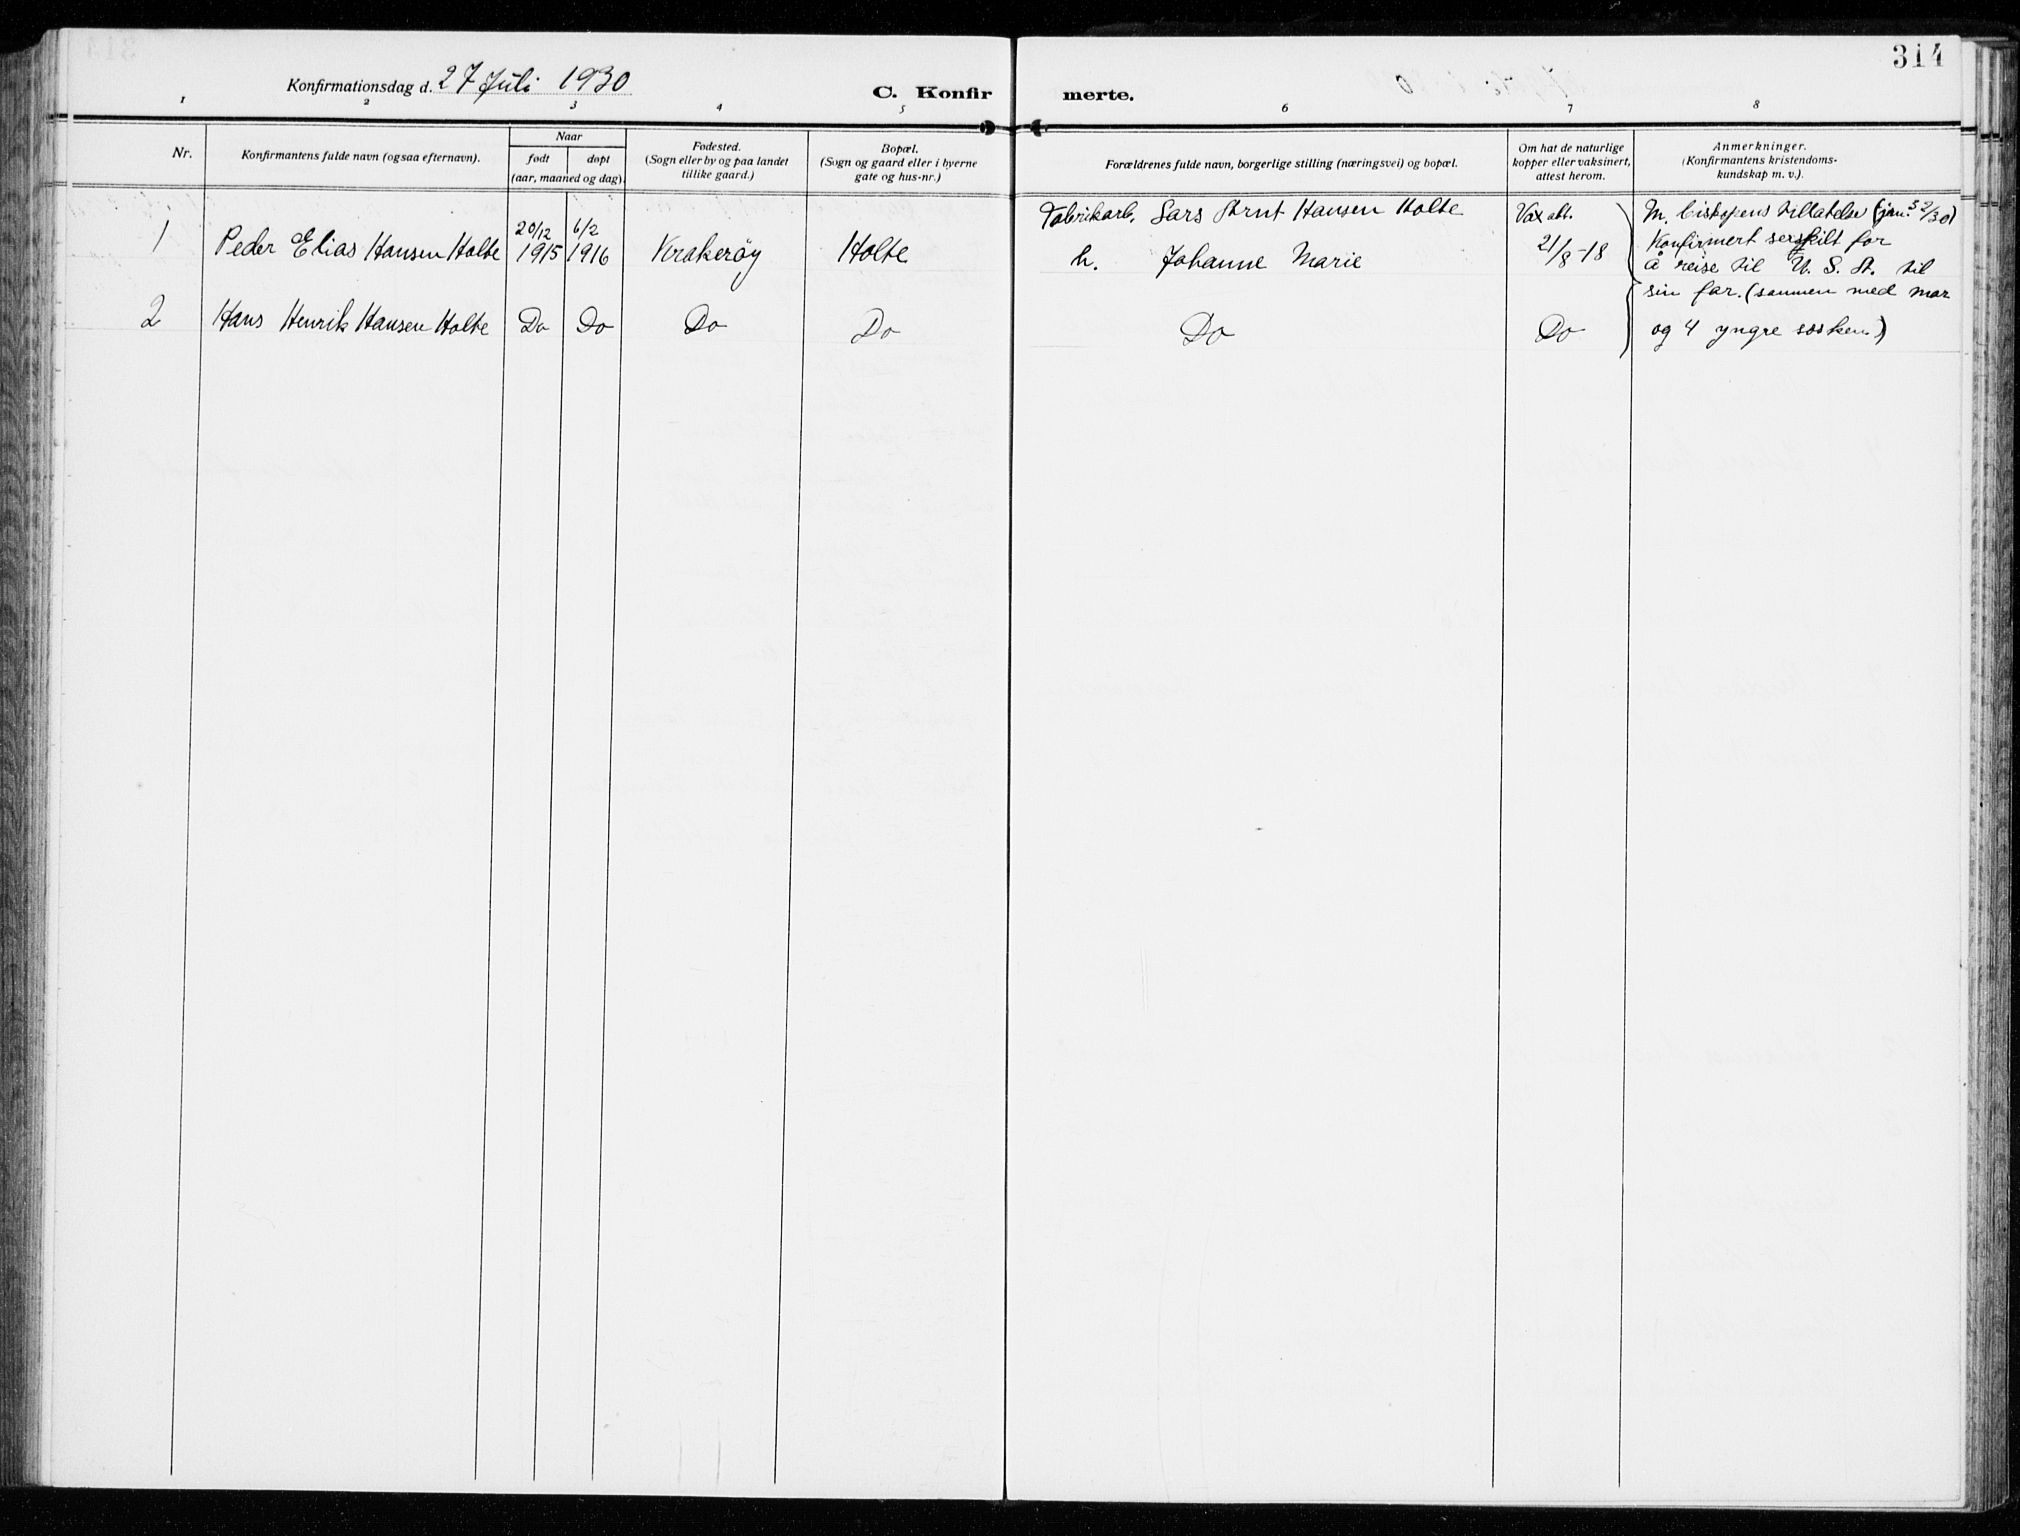 314
Konfirmationsdag d. 27 Juli 1930
C. Konfirmerte.
1 2 3 4 5 6 7 8
Nr.
Konfirmantens fulde navn (ogsaa efternavn).
Naar
født døpt
(aar, maaned og dag).
Fødested.
(Sogn eller by og paa landet
tillike gaard.)
Bopæl.
(Sogn og gaard eller i byerne
gate og hus-nr.)
Forældrenes fulde navn, borgerlige stilling (næringsvei) og bopæl.
Om hat de naturlige
kopper eller vaksinert,
attest herom.
Anmerkninger.
(Konfirmantens kristendoms-
kundskap m. v.).
1 Peder Elias Hansen Holte 20/12 1915 6/2 1916 Krakerøy Holte
Fabrikarb. Lars Arnt Hansen Holte
h. Johanne Marie
Vax att.
21/8-18
M. biskopens tillatelse (jrn. 32/30)
Konfirmert serskilt for
å reise til U. S. A. til
sin far. (sammen med mor
og 4 yngre søsken.)
2 Hans Henrik Hansen Holte Do Do Do Do Do Do